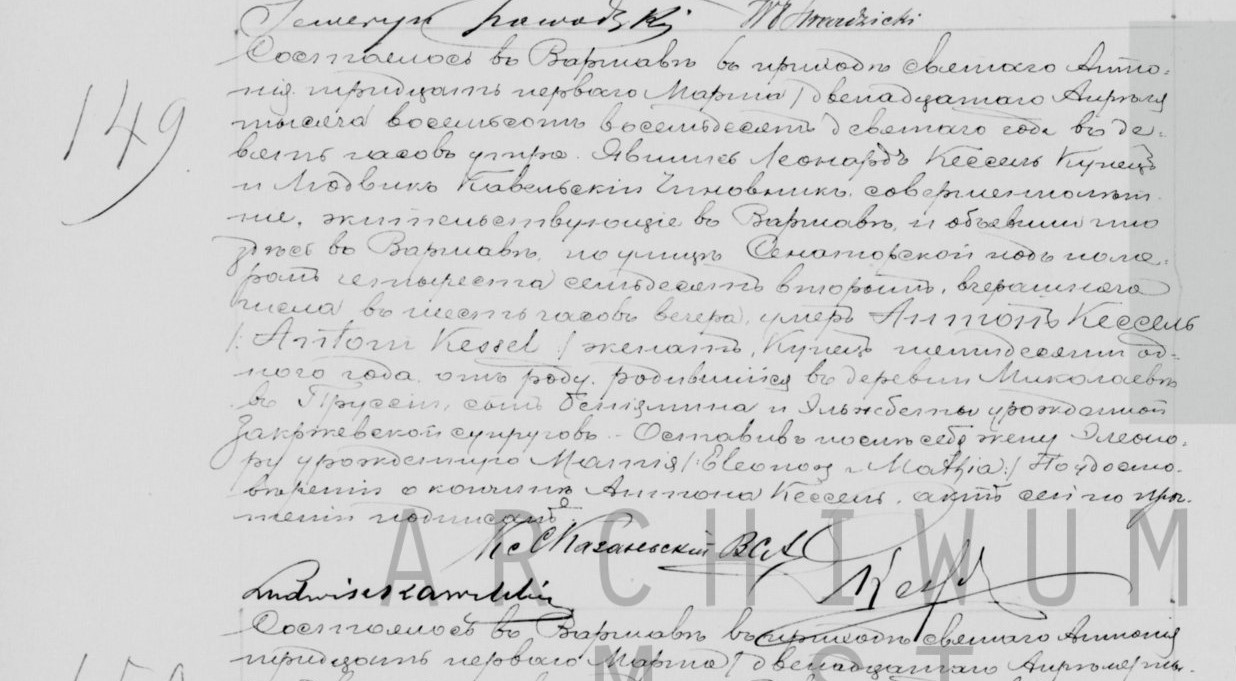 Seweryn Zawadzki
149
Состоялось въ Варшавѣ въ приходѣ святаго Анто-
нія тридцать перваго Марта / двенадцатаго Апрѣля
тысяча восемьсотъ восемьдесятъ девятаго года въ де-
вять часовъ утра. Явились Леонардъ Кессель Купецъ
и Людвикъ Кавельскій Чиновникъ, совершеннолѣт-
ніе, жительствующіе въ Варшавѣ, и объявили что
здѣсь въ Варшавѣ, по улицѣ Сенаторской подъ номе-
ромъ четыреста семьдесятъ вторымъ, вчерашняго
числа въ шесть часовъ вечера, умеръ Антонъ Кессель
/: Antoni Kessel / женатъ, Купецъ шестидесяти од-
ного года отъ роду, родившійся въ деревни Миколаевѣ
въ Пруссіи, сынъ Беніямина и Эльжбеты урожденной
Закржевской супруговъ.- Оставивъ послѣ себя жену Элеоно-
ру урожденную Маттія /: Eleonorę z Mathia :/ По удосто-
вѣреніи о кончинѣ Антона Кессель, актъ сей по про-
чтеніи подписанъ.
Кс С Казаньскій ВСА
Ludwik Kawelski
Состоялось въ Варшавѣ въ приходѣ святаго Антонія
тридцать перваго Марта / двенадцатаго Апрѣля ты-
ARCHIWUM
M ST